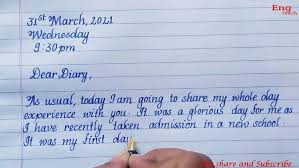 Eng
Teach
31st March, 2021
Wednesday
9:30pm
Dear Diary,
As usual, today I am going to share my whole day
experience with you. It was a glorious day for me as
I have recently taken admission in a new school.
It was my first da
share and Subscribe